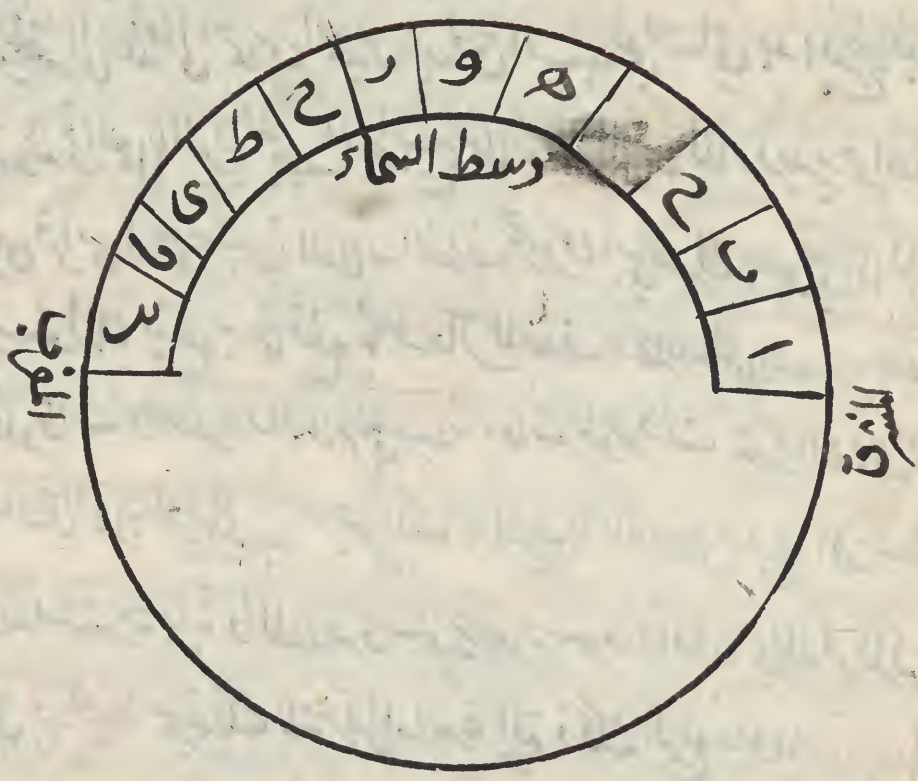 ا
ٮ
ح
ه
و
ر
ح
ط
ى
ىا
ىٮ
وسط السماء
المشرق
المغرب